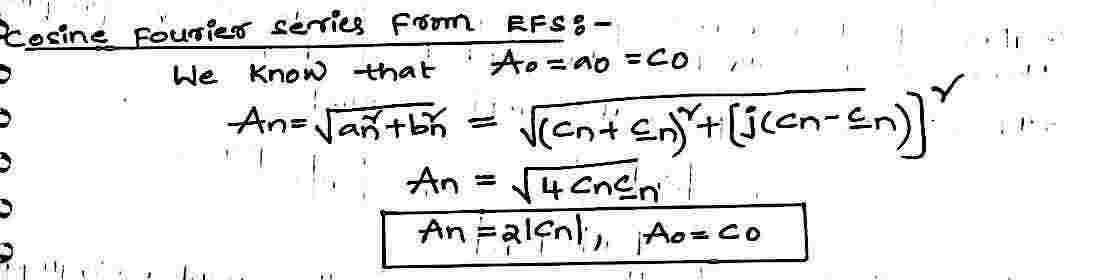 Cosine Fourier series From EFS:-
We know that A₀ = a₀ = C₀
Aₙ = √(aₙ² + bₙ²) = √((Cₙ + C₋ₙ)² + [j(Cₙ - C₋ₙ)]²)
Aₙ = √(4 Cₙ C₋ₙ)
Aₙ = 2|Cₙ|, A₀ = C₀